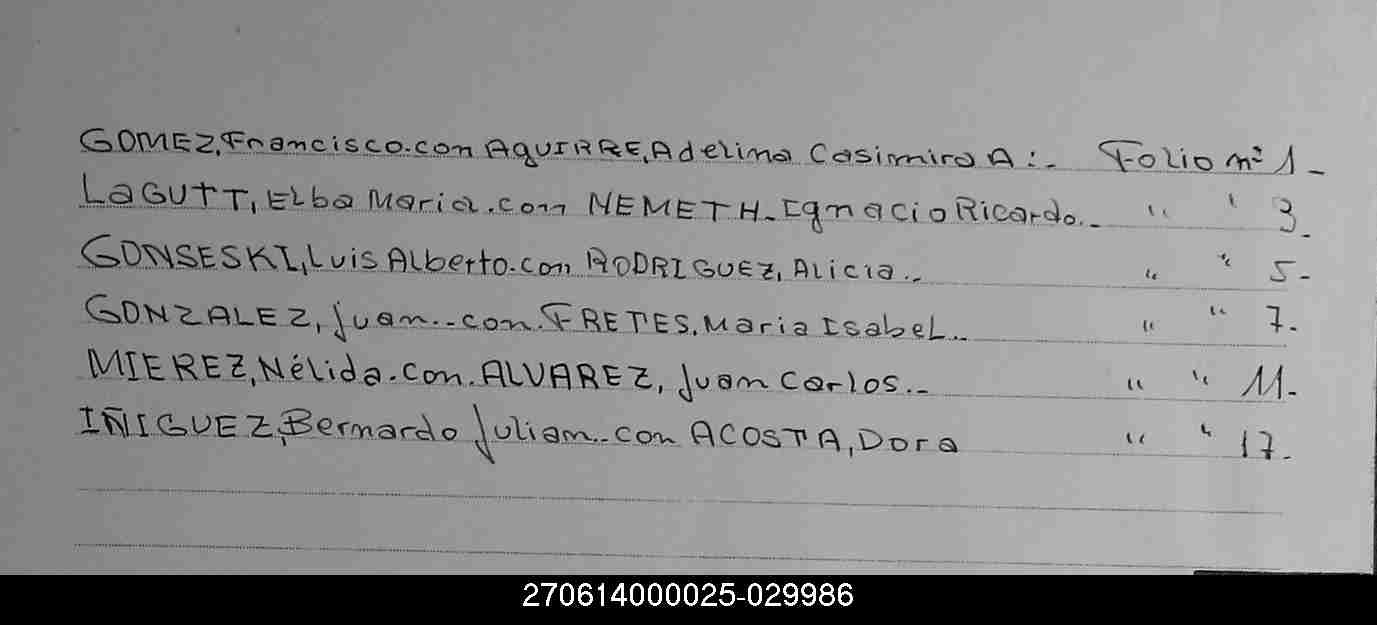 GOMEZ, Francisco. con AGUIRRE, Adelina Casimira A:.- Folio nº 1.-
LAGUTT, Elba Maria. con NEMETH. Ignacio Ricardo.- " " 3.-
GONSESKI, Luis Alberto. con RODRIGUEZ, Alicia.- " " 5.-
GONZALEZ, Juan.- con. FRETES, Maria Isabel.- " " 7.-
MIEREZ, Nélida. con. ALVAREZ, Juan Carlos.- " " 11.-
IÑIGUEZ, Bernardo Julian.. con ACOSTA, Dora " " 17.-
270614000025-029986